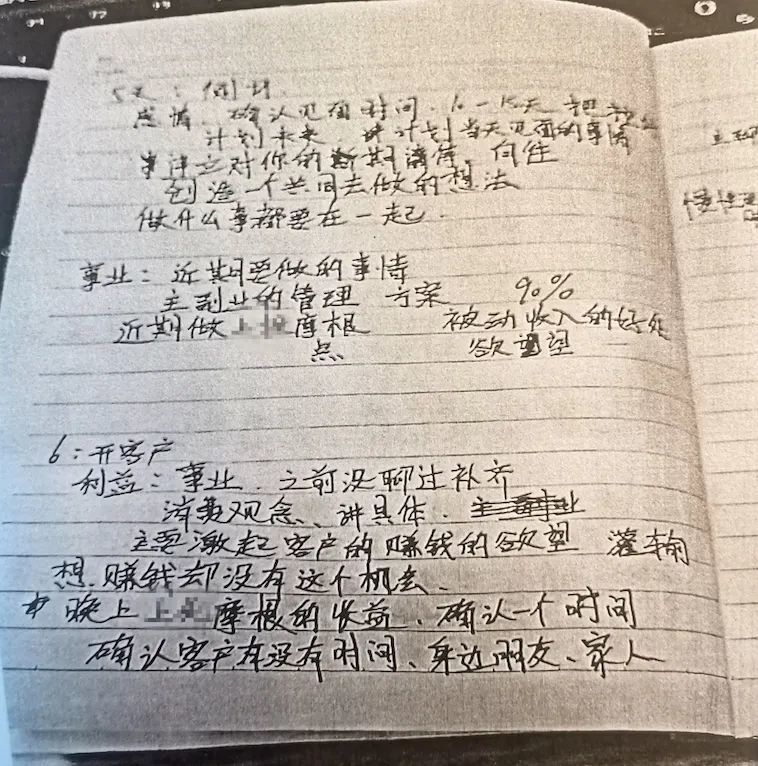 5天：
感情 确认见面时间．
计划未来 计划当天见面的事情
对你的 向往
创造一个共同去做的想法
做什么事都要在一起．
事业：近期要做的事情
主副业的管理 方案 90%
近期做 摩根 被动收入的好处
点 欲望
6：开客户
利益：事业．之前没聊过补齐
消费观念、讲具体．
主要激起客户的赚钱的欲望 灌输
想．赚钱却没有这个机会、
晚上 摩根的收益．确认一个时间
确认客户有没有时间、身边朋友、家人